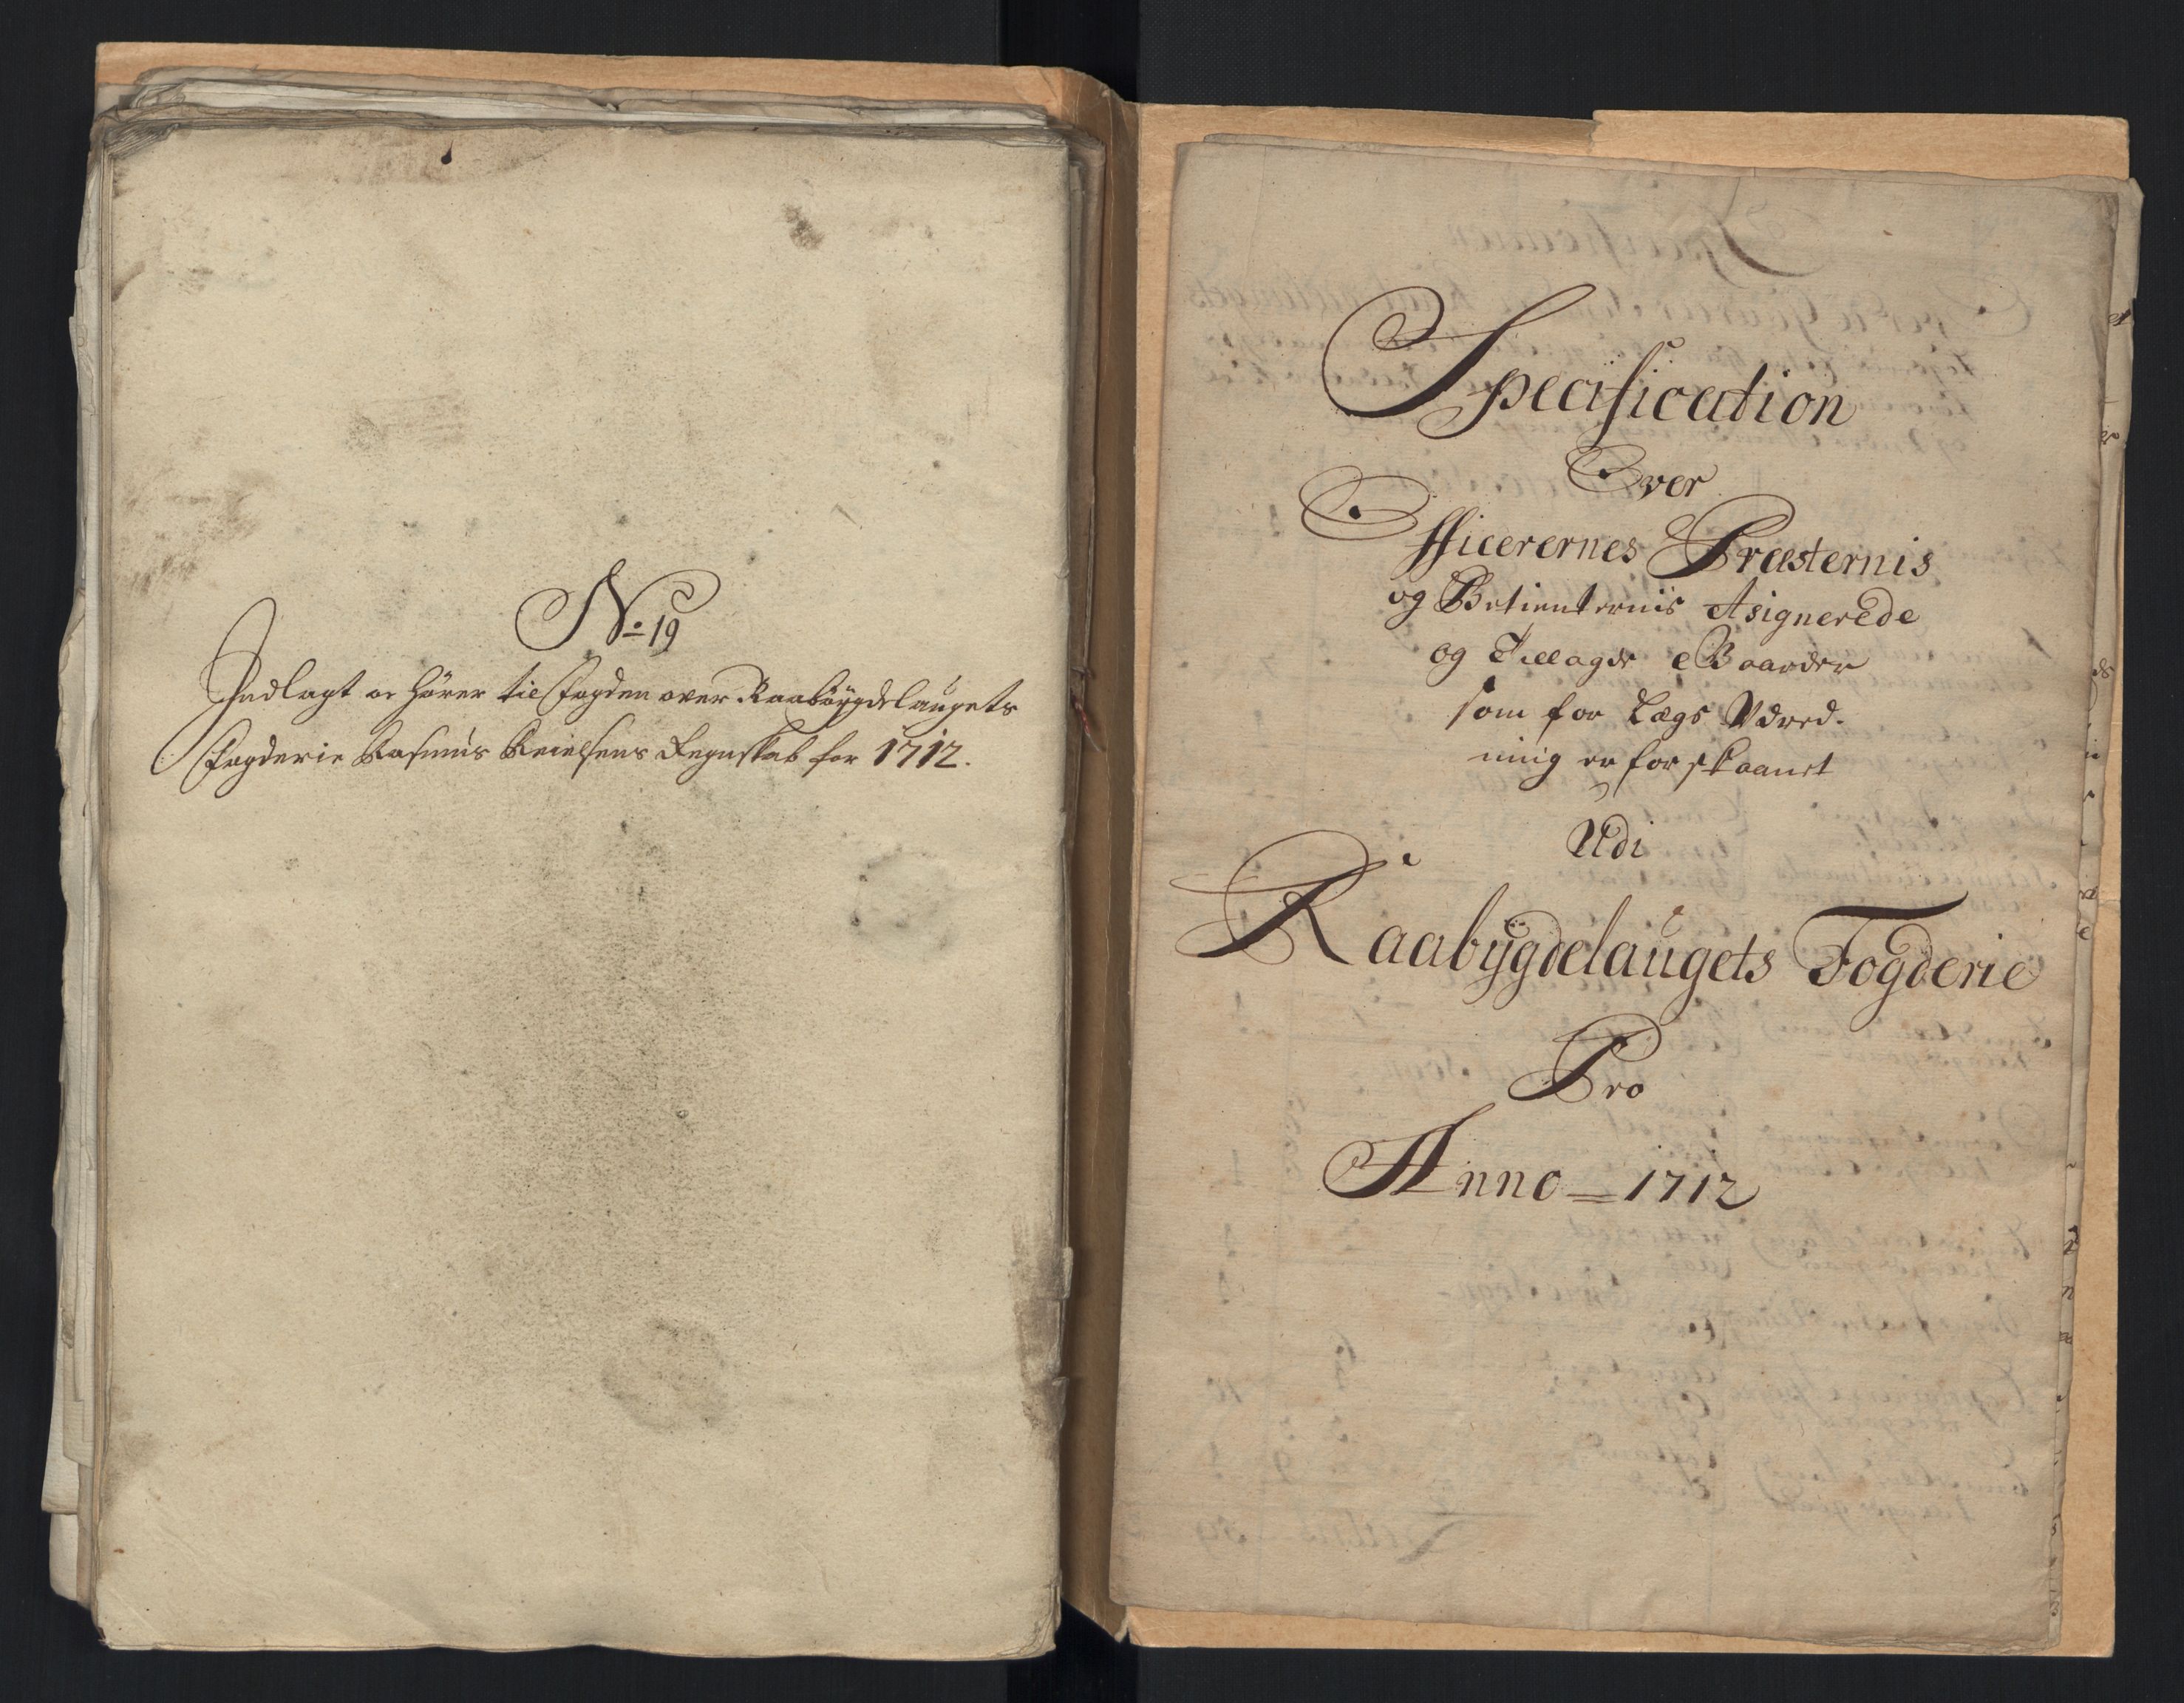 No 19
Indlagt oc hörer til Fogden over Raabÿgdelaugets
Fogderie Rasmus Keielsens Regnskab for 1712.
Specification
Over
Officerernes Præsternis
og Betienternis Asignerede
og Tillagde Gaarder
som for Lægs Udred-
ning er forskaanet
Udi
Raabÿgdelaugets Fogderie
Pro
Anno = 1712